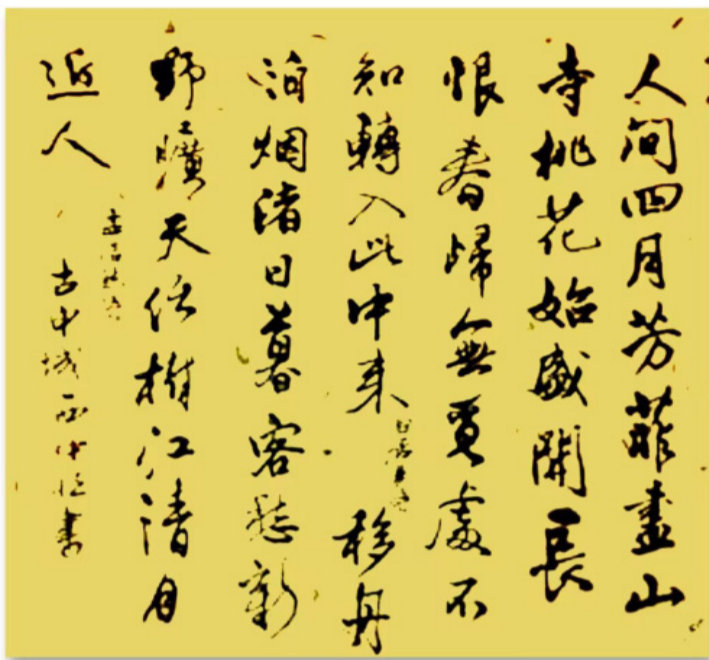 人间四月芳菲盡山
寺桃花始盛開長
恨春歸無覓處不
知轉入此中来 白居易 移舟
泊烟渚日暮客愁新
野曠天低樹江清月
近人 孟浩然诗 古中城書